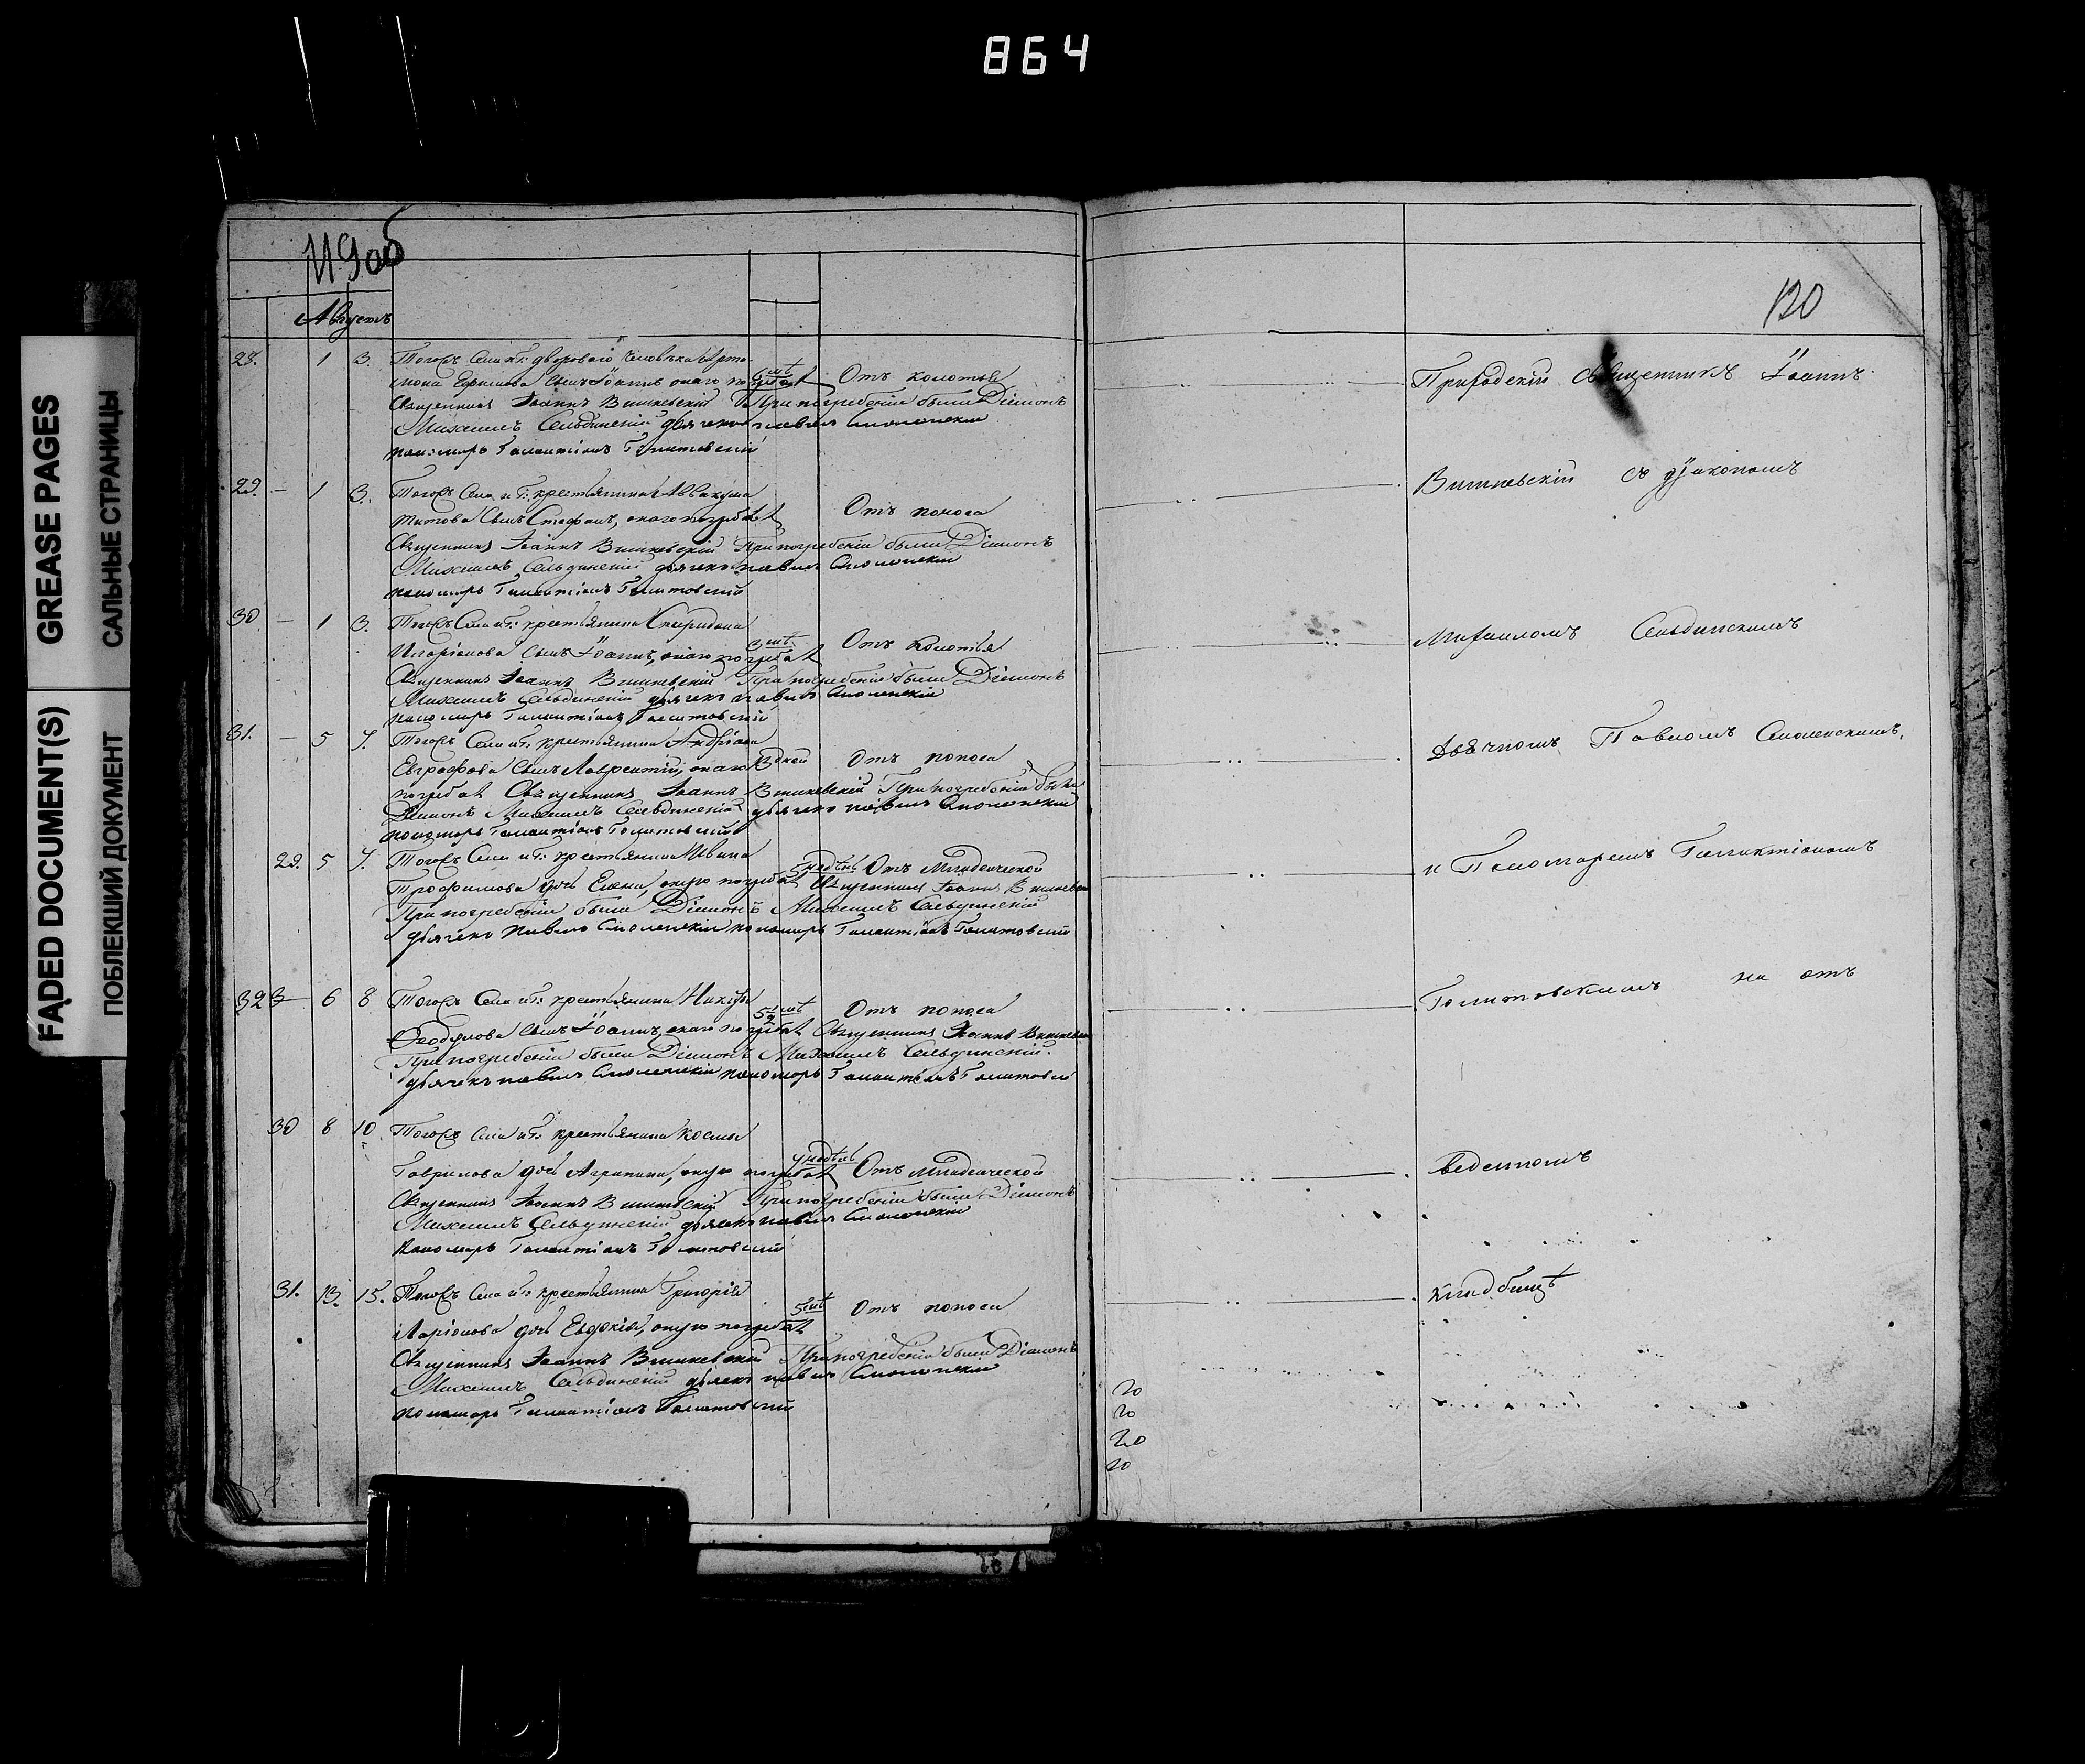 864
GREASE PAGES
САЛЬНЫЕ СТРАНИЦЫ
FADED DOCUMENT(S)
ПОБЛЕКШИЙ ДОКУМЕНТ
119 об
Августъ
28. 1 3. Тогожъ Села дворового человѣка Арта-
мона Ефимова сынъ Іоаннъ, онаго погребалъ 6 лѣтъ Отъ колотья
Священникъ Іоаннъ Вишневскій При погребеніи были Діаконъ
Михаилъ Сельдинскій дьячекъ павелъ Смоленскій
пономарь Галактіонъ Голитовскій
29. — 1 3. Тогожъ Села крестьянина Аввакума
Титова сынъ Стефанъ, онаго погребалъ Отъ поноса
Священникъ Іоаннъ Вишневскій При погребеніи были Діаконъ
Михаилъ Сельдинскій дьячекъ павелъ Смоленскій
пономарь Галактіонъ Голитовскій
30. — 1 3. Тогожъ Села крестьянина Спиридона
Иларіонова сынъ Іоаннъ, онаго погребалъ 3 лѣтъ Отъ колотья
Священникъ Іоаннъ Вишневскій При погребеніи были Діаконъ
Михаилъ Сельдинскій дьячекъ павелъ Смоленскій
пономарь Галактіонъ Голитовскій
31. — 5 7. Тогожъ Села крестьянина Андріана
Евграфова сынъ Лаврентій, онаго дней Отъ поноса
погребалъ Священникъ Іоаннъ Вишневскій При погребеніи были
Діаконъ Михаилъ Сельдинскій дьячекъ павелъ Смоленскій
пономарь Галактіонъ Голитовскій
29. 5 7. Тогожъ Села крестьянина Ивана
Трофимова дочь Елена, оную погребалъ 5 недѣль Отъ Младенческой
Священникъ Іоаннъ Вишневскій
При погребеніи были Діаконъ Михаилъ Сельдинскій
дьячекъ павелъ Смоленскій пономарь Галактіонъ Голитовскій
32 — 6 8 Тогожъ Села крестьянина Никиты
Феодулова сынъ Іоаннъ, онаго погребалъ Отъ поноса
Священникъ Іоаннъ Вишневскій
При погребеніи были Діаконъ Михаилъ Сельдинскій
дьячекъ павелъ Смоленскій пономарь Галактіонъ Голитовскій
30 8 10. Тогожъ Села крестьянина Космы
Гаврилова дочь Агрипина, оную погребалъ недѣль Отъ Младенческой
Священникъ Іоаннъ Вишневскій При погребеніи были Діаконъ
Михаилъ Сельдинскій дьячекъ павелъ Смоленскій
пономарь Галактіонъ Голитовскій
31. 13. 15. Тогожъ Села крестьянина Григорія
Иларіонова дочь Евдокія, оную погребалъ 5 лѣтъ Отъ поноса
Священникъ Іоаннъ Вишневскій При погребеніи были Діаконъ
Михаилъ Сельдинскій дьячекъ павелъ Смоленскій
пономарь Галактіонъ Голитовскій
120
Приходскій Священникъ Іоаннъ
Вишневскій съ діакономъ
Михаиломъ Сельдинскимъ
Дьячкомъ Павломъ Смоленскимъ,
и Пономаремъ Галактіономъ
Голитовскимъ на отъ
веденномъ
кладбищѣ
20
20
20
20